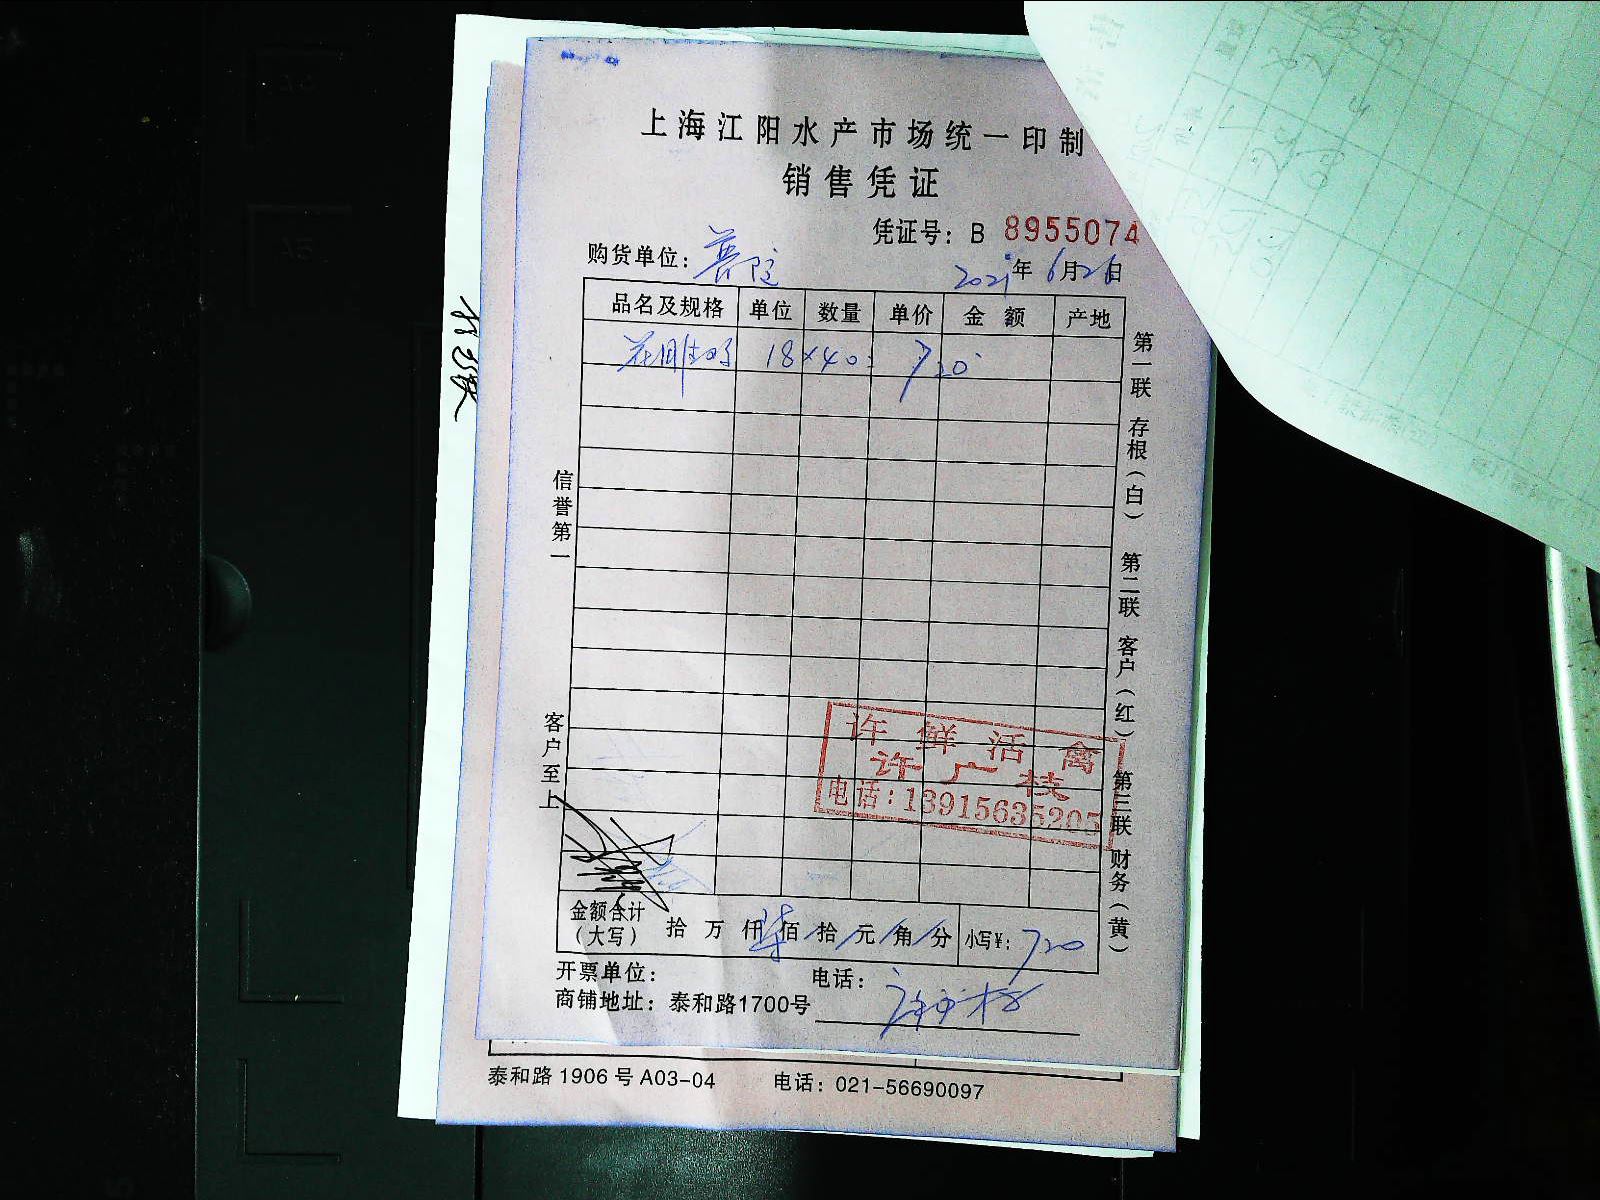 上海江阳水产市场统一印制
销售凭证
凭证号：B 8955074
购货单位：
2021年6月26日
品名及规格 单位 数量 单价 金额 产地
18×40= 720
信誉第一
客户至上
第一联 存根（白） 第二联 客户（红） 第三联 财务（黄）
许鲜活禽
许广枝
电话：13915635205
金额合计（大写） 拾 万 仟 柒 佰 拾 元 角 分 小写¥：720
开票单位： 电话：
商铺地址：泰和路1700号
泰和路 1906 号 A03-04 电话：021-56690097